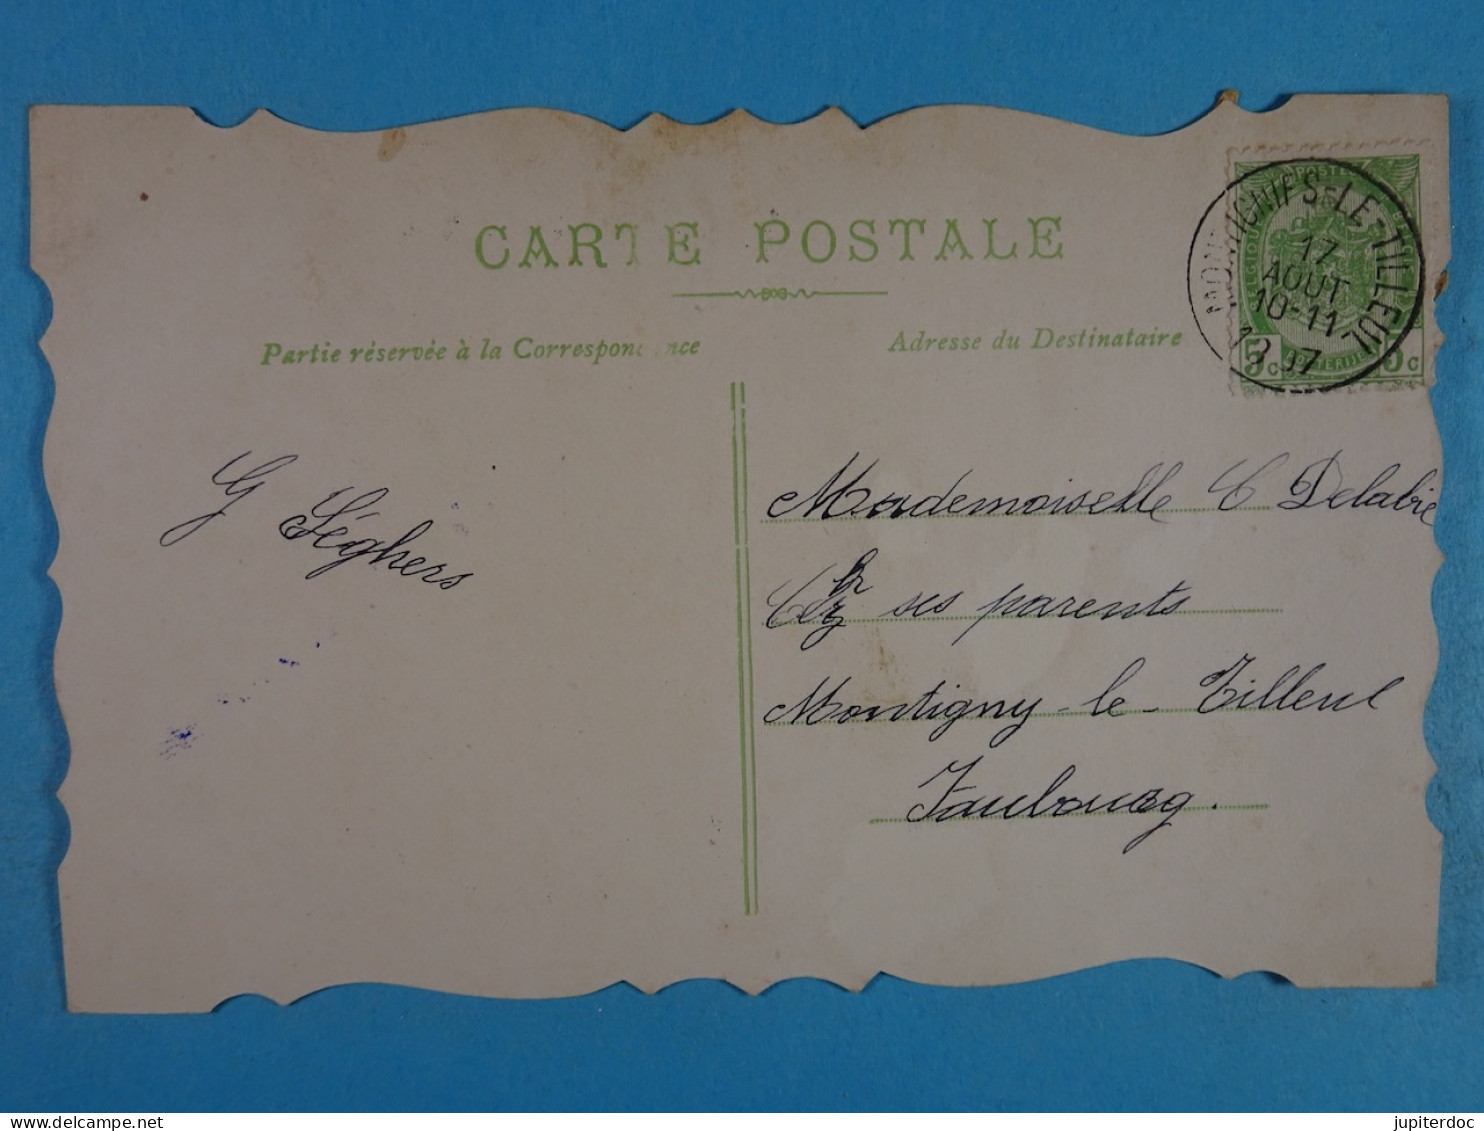 CARTE POSTALE
Partie réservée à la Correspondance
Adresse du Destinataire
MONTIGNIES-LE-TILLEUL
17
AOUT
10-11
1907
POSTES
5c 5c
G Séghers
Mademoiselle C Delabie
ses parents
Montigny-le-Tilleul
Faubourg.
jupiterdoc